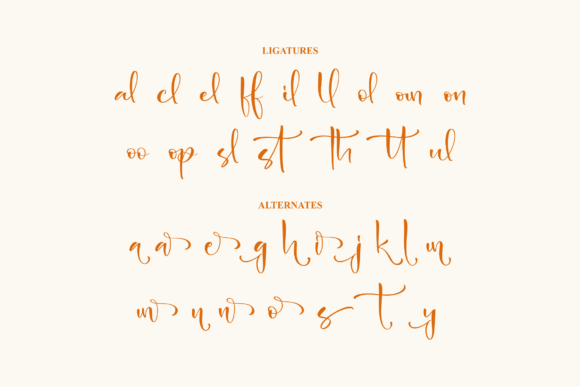 LIGATURES
al cl el ff il ll ol om on
oo op sl st th tt ul
ALTERNATES
a a e g h i j k l m
m n n o s t y